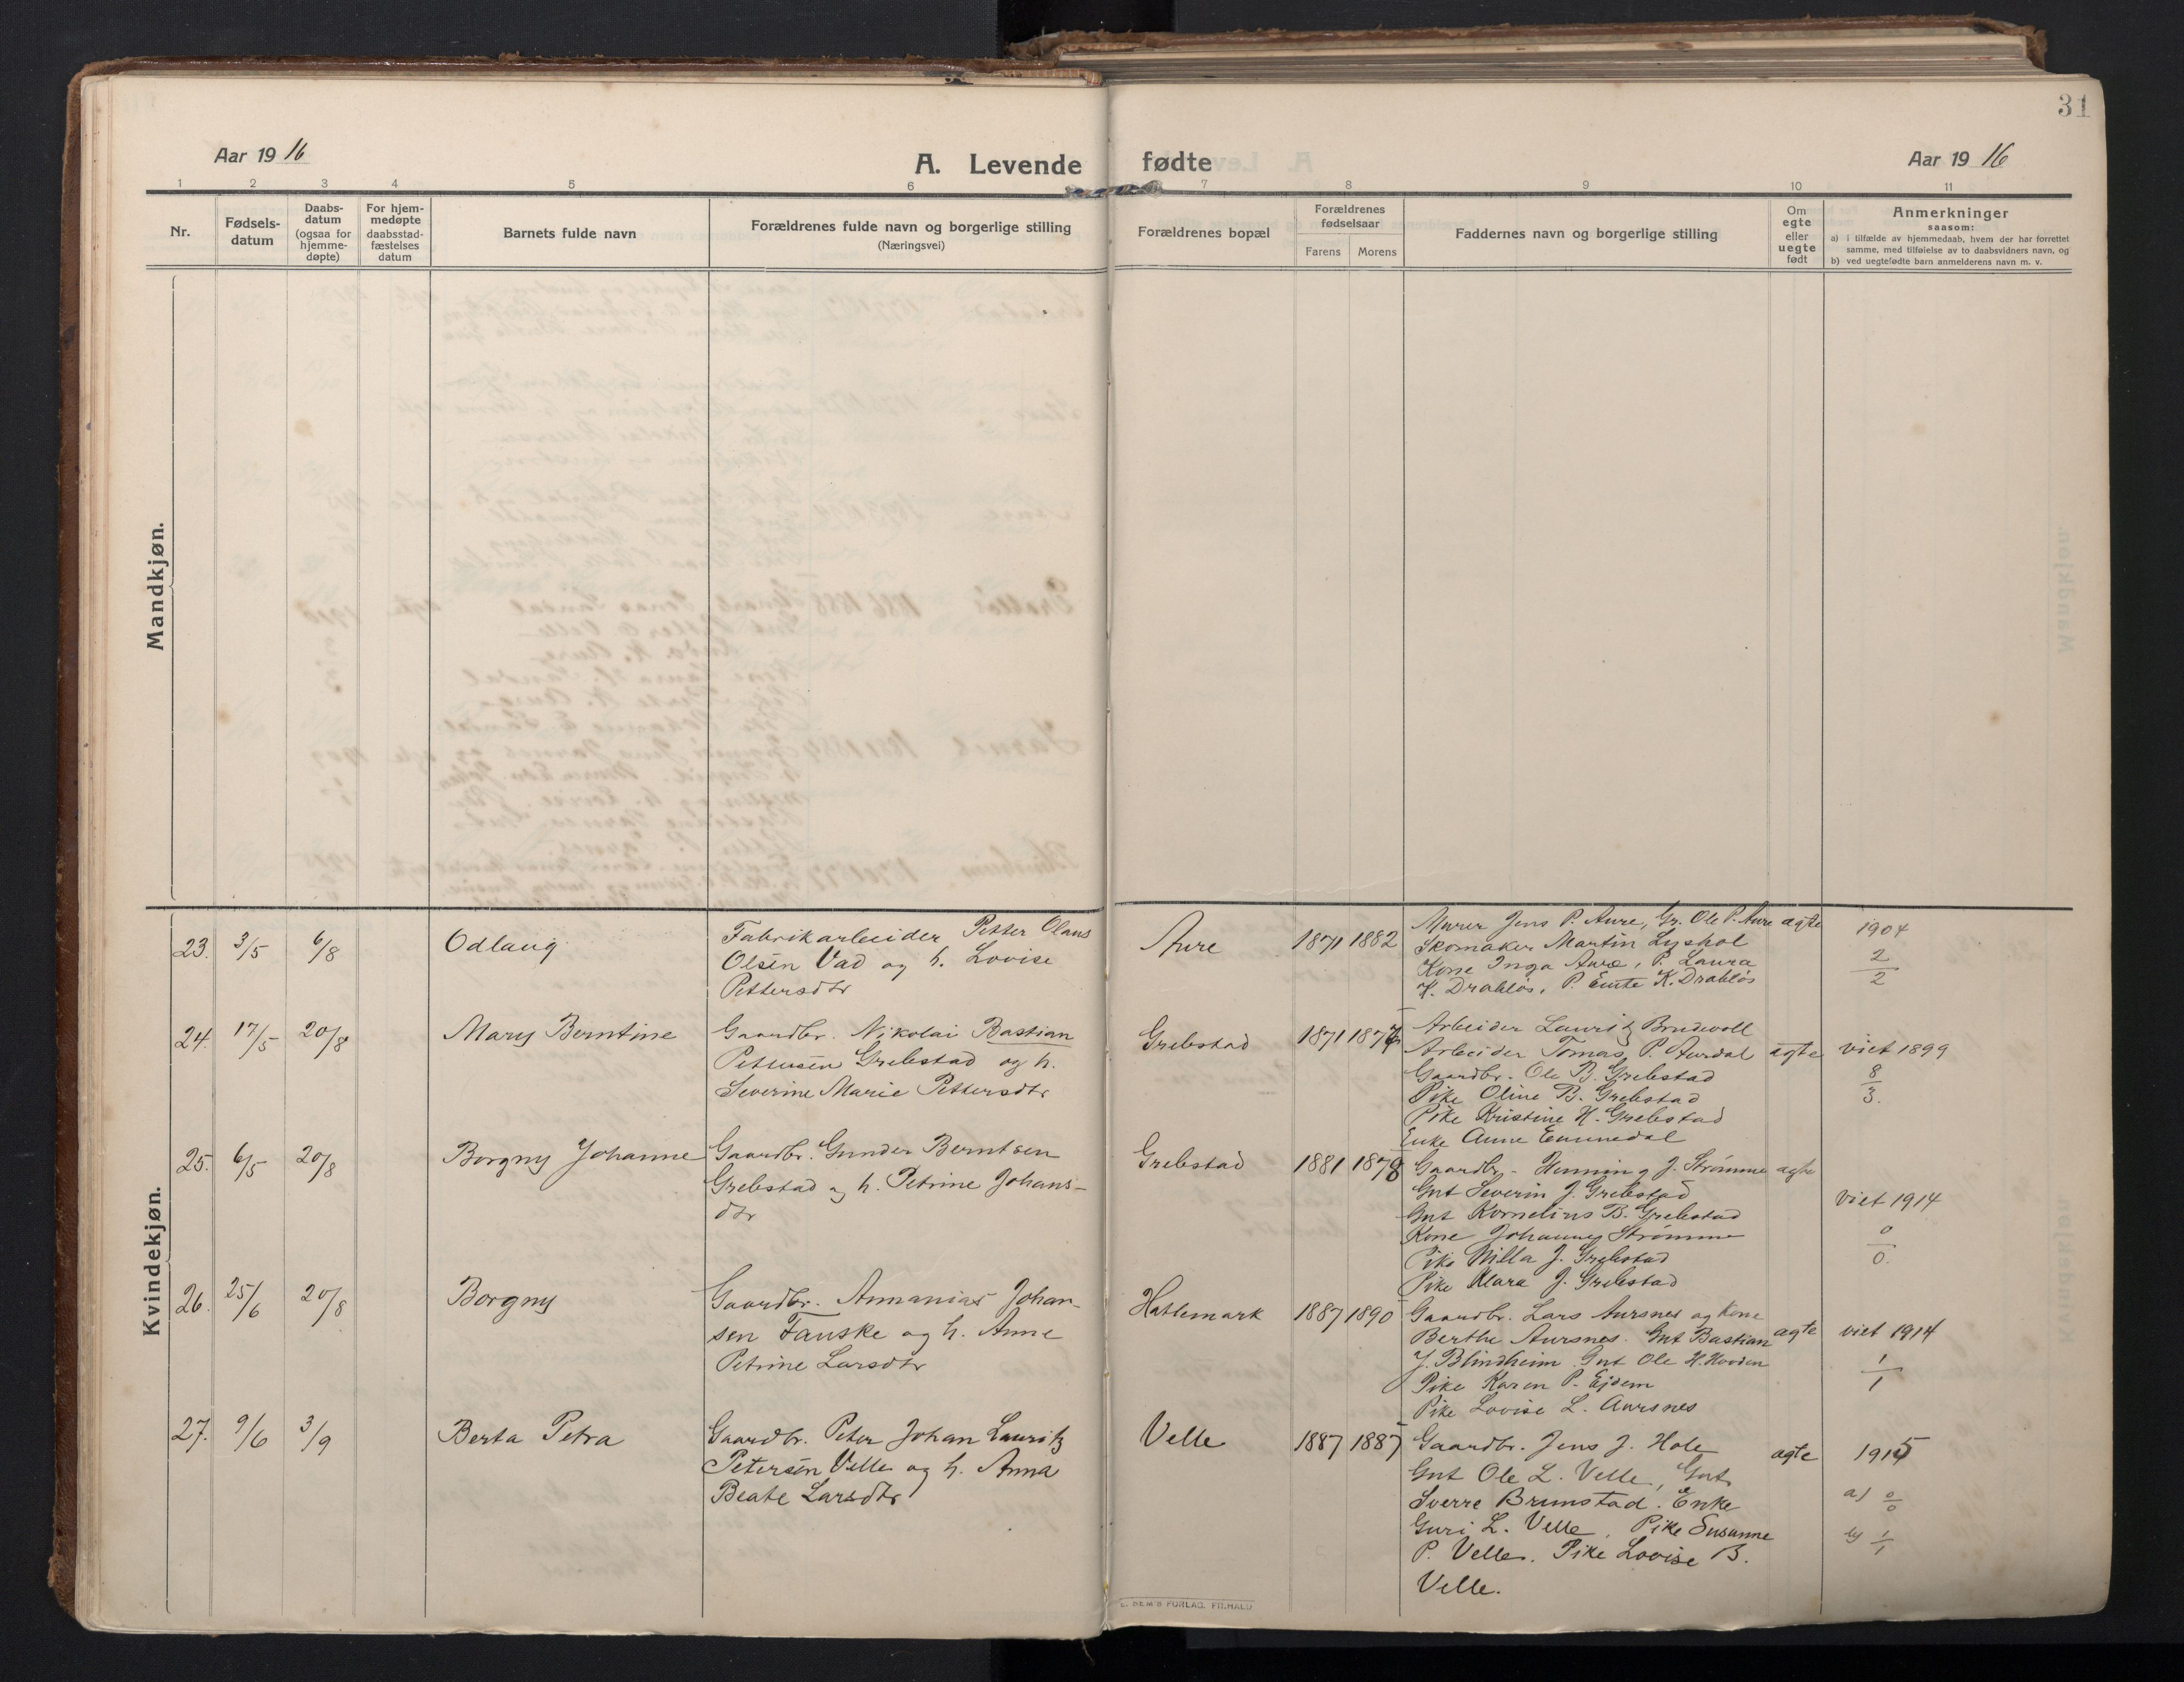 31
Aar 1916
A. Levende fødte
Aar 1916
1 2 3 4 5 6 7 8 9 10 11
Nr.
Fødsels-
datum
Daabs-
datum
(ogsaa for
hjemme-
døpte)
For hjem-
medøpte
daabsstad-
fæstelses
datum
Barnets fulde navn
Forældrenes fulde navn og borgerlige stilling
(Næringsvei)
Forældrenes bopæl
Forældrenes
fødselsaar
Farens Morens
Faddernes navn og borgerlige stilling
Om
egte
eller
uegte
født
Anmerkninger
saasom:
a) i tilfælde av hjemmedaab, hvem der har forrettet
samme, med tilføielse av to daabsvidners navn, og
b) ved uegtefødte barn anmelderens navn m. v.
Mandkjøn.
Kvindekjøn.
23. 3/5 6/8 Odlaug
Fabrikarbeider Petter Olaus
Olsen Vad og h. Lovise
Pettersdtr
Aure 1871 1882
Murer Jens P. Aure, Gr. Ole P. Aure
Skomaker Martin Lyshol
Kone Inga Aure, P. Laura
K. Drabløs, P. K. Drabløs
agte
1904
2
2
24. 17/5 20/8 Mary Berntine
Gaardbr. Nikolai Bastian
Pettersen Grebstad og h.
Severine Marie Pettersdtr
Grebstad 1871
Arbeider Lauritz Brudevoll
Arbeider Tomas P. Aurdal
Gaardbr. Ole B. Grebstad
Pike Oline B. Grebstad
Pike Kristine H. Grebstad
Enke Anne Emmedal
agte
viet 1899
8
3.
25. 6/5 20/8 Borgny Johanne
Gaardbr. Gunder Berntsen
Grebstad og h. Petrine Johans-
dtr
Grebstad 1881 1878
Gaardbr. Henning J. Strømme
Gut Severin J. Grebstad
Gut Kornelius B. Grebstad
Kone Johanne Strømme
Pike Milla J. Grebstad
Pike Klara J. Grebstad
agte
viet 1914
0
0.
26. 25/6 20/8 Borgny
Gaardbr. Annanias Johan-
sen Fauske og h. Anne
Petrine Larsdtr
Hatlemark 1887 1890
Gaardbr. Lars Aursnes og Kone
Berthe Aursnes. Gut Bastian
J. Blindheim. Gut Ole H.
Pike Karen P. Ejdem
Pike Lovise L. Aursnes
agte
viet 1914
1
1
27. 9/6 3/9 Berta Petra
Gaardbr. Peter Johan Lauritz
Petersen Velle og h. Anna
Beate Larsdtr
Velle 1887 1887
Gaardbr. Jens J. Hole
Gut Ole L. Velle, Gut
Sverre Brunstad. Enke
Guri L. Velle, Pike Susanne
P. Velle. Pike Lovise B.
Velle.
agte
1915
a) 0/0
b) 1/1